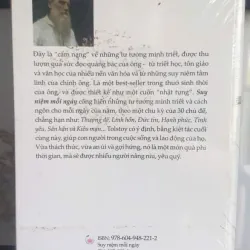 Đây là "cẩm nang" về những tư tưởng minh triết, được thu
lượm qua sức đọc quảng bác của ông - từ triết học, tôn giáo
và văn học của nhiều nền văn hóa và từ những suy niệm tâm
linh của chính ông. Là một best-seller trong thời sinh thời
của ông, và được thiết kế như một cuốn "nhật tụng". Suy
niệm mỗi ngày cống hiến những tư tưởng minh triết và cách
ngôn cho mỗi ngày của năm, theo một chu kỳ của 30 chủ đề,
chẳng hạn như: Thượng đế, Linh hồn, Đức tin, Hạnh phúc, Tình
yêu, Sân hận và Kiêu mạn,.. Tolstoy có ý định, bằng kiệt tác cuối cùng
này, giúp con người trong cuộc sống và lao động của họ.
Vừa thách thức, vừa an ủi và gợi hứng, nó là một món quà phi
thời gian, mà sẽ được nhiều người nâng niu, yêu quý.
ISBN: 978-604-948-221-2
Suy niệm mỗi ngày